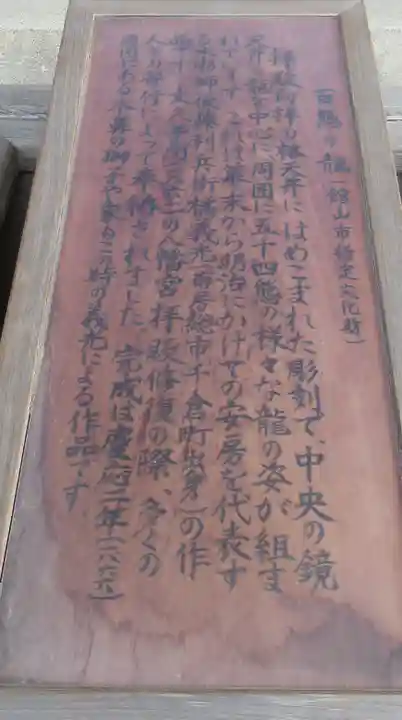 百態の龍（館山市指定文化財）
拝殿向拝の格天井にはめこまれた彫刻で、中央の鏡
天井の龍を中心に、周囲に五十四態の様々な龍の姿が組ま
れています。これは幕末から明治にかけての安房を代表す
る彫刻師後藤利兵衛橘義光(南房総市千倉町出身)の作
の八幡宮拝殿修復の際、多くの
人の寄付によって奉納されました。完成は慶応二年(一八六六)
周囲にある の獅子や象もこの時の義光による作品です